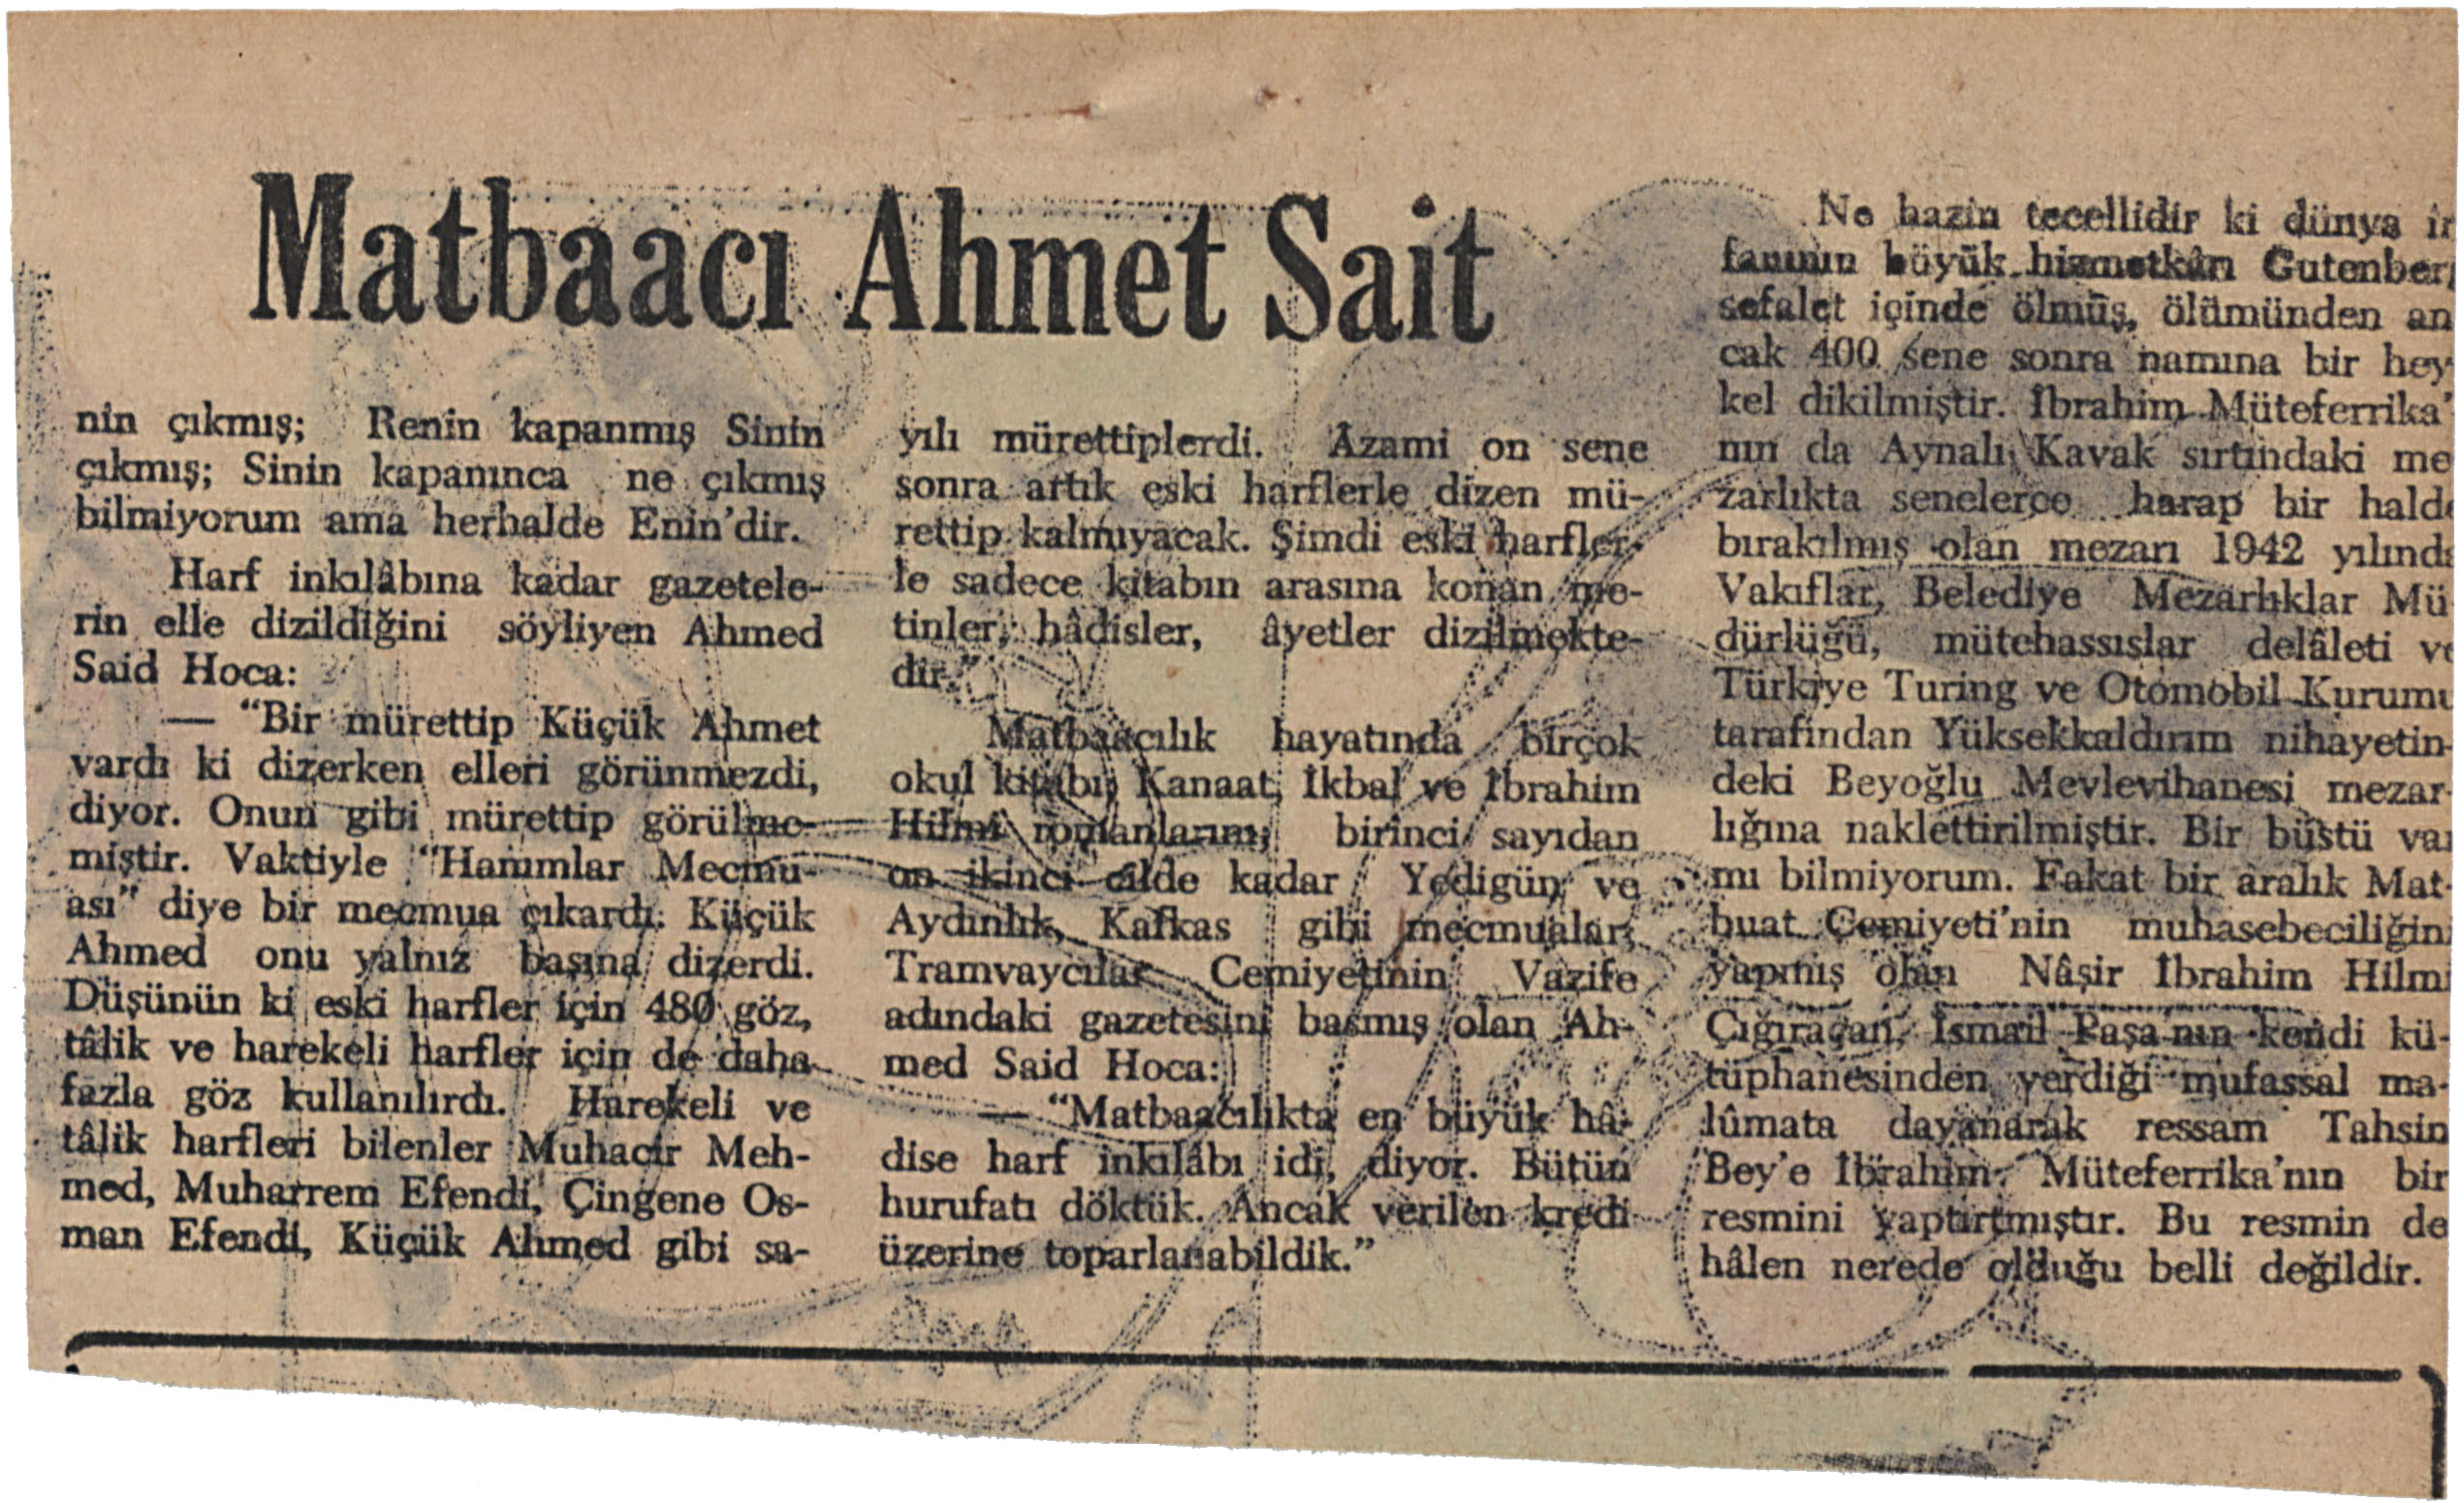 Matbaacı Ahmet Sait
nin çıkmış; Renin kapanmış Sinin
çıkmış; Sinin kapanınca ne çıkmış
bilmiyorum ama herhalde Enin'dir.
Harf inkılâbına kadar gazetele-
rin elle dizildiğini söyliyen Ahmed
Said Hoca:
— "Bir mürettip Küçük Ahmet
vardı ki dizerken elleri görünmezdi,
diyor. Onun gibi mürettip görülme-
miştir. Vaktiyle "Hanımlar Mecmu-
ası" diye bir mecmua çıkardı. Küçük
Ahmed onu yalnız başına dizerdi.
Düşünün ki eski harfler için 480 göz,
tâlik ve harekeli harfler için de daha
fazla göz kullanılırdı. Harekeli ve
tâlik harfleri bilenler Muhacir Meh-
med, Muharrem Efendi, Çingene Os-
man Efendi, Küçük Ahmed gibi sa-
yılı mürettiplerdi. Âzami on sene
sonra artık eski harflerle dizen mü-
rettip kalmıyacak. Şimdi eski harfler-
le sadece kitabın arasına konan me-
tinler, hâdisler, âyetler dizilmekte-
dir."
Matbaacılık hayatında birçok
okul kitabı, Kanaat, İkbal ve İbrahim
Hilmi romanlarını, birinci sayıdan
on ikinci cilde kadar Yedigün, ve
Aydınlık, Kafkas gibi mecmualar,
Tramvaycılar Cemiyetinin Vazife
adındaki gazetesini basmış olan Ah-
med Said Hoca:
— "Matbaacılıkta en büyük hâ-
dise harf inkılâbı idi, diyor. Bütün
hurufatı döktük. Ancak verilen kredi
üzerine toparlanabildik."
Ne hazin tecellidir ki dünya ir
fanının büyük hizmetkârı Gutenber
sefalet içinde ölmüş, ölümünden an
cak 400 sene sonra namına bir hey
kel dikilmiştir. İbrahim Müteferrika'
nın da Aynalı Kavak sırtındaki me
zarlıkta senelerce harap bir halde
bırakılmış olan mezarı 1942 yılında
Vakıflar, Belediye Mezarlıklar Mü
dürlüğü, mütehassıslar delâleti ve
Türkiye Turing ve Otomobil Kurumu
tarafından Yüksekkaldırım nihayetin-
deki Beyoğlu Mevlevihanesi mezar-
lığına naklettirilmiştir. Bir büstü var
mı bilmiyorum. Fakat bir aralık Mat-
buat Cemiyeti'nin muhasebeciliğini
yapmış olan Nâşir İbrahim Hilmi
Çığıraçan, İsmail Paşa'nın kendi kü-
tüphanesinden verdiği mufassal ma-
lûmata dayanarak ressam Tahsin
Bey'e İbrahim Müteferrika'nın bir
resmini yaptırtmıştır. Bu resmin de
hâlen nerede olduğu belli değildir.